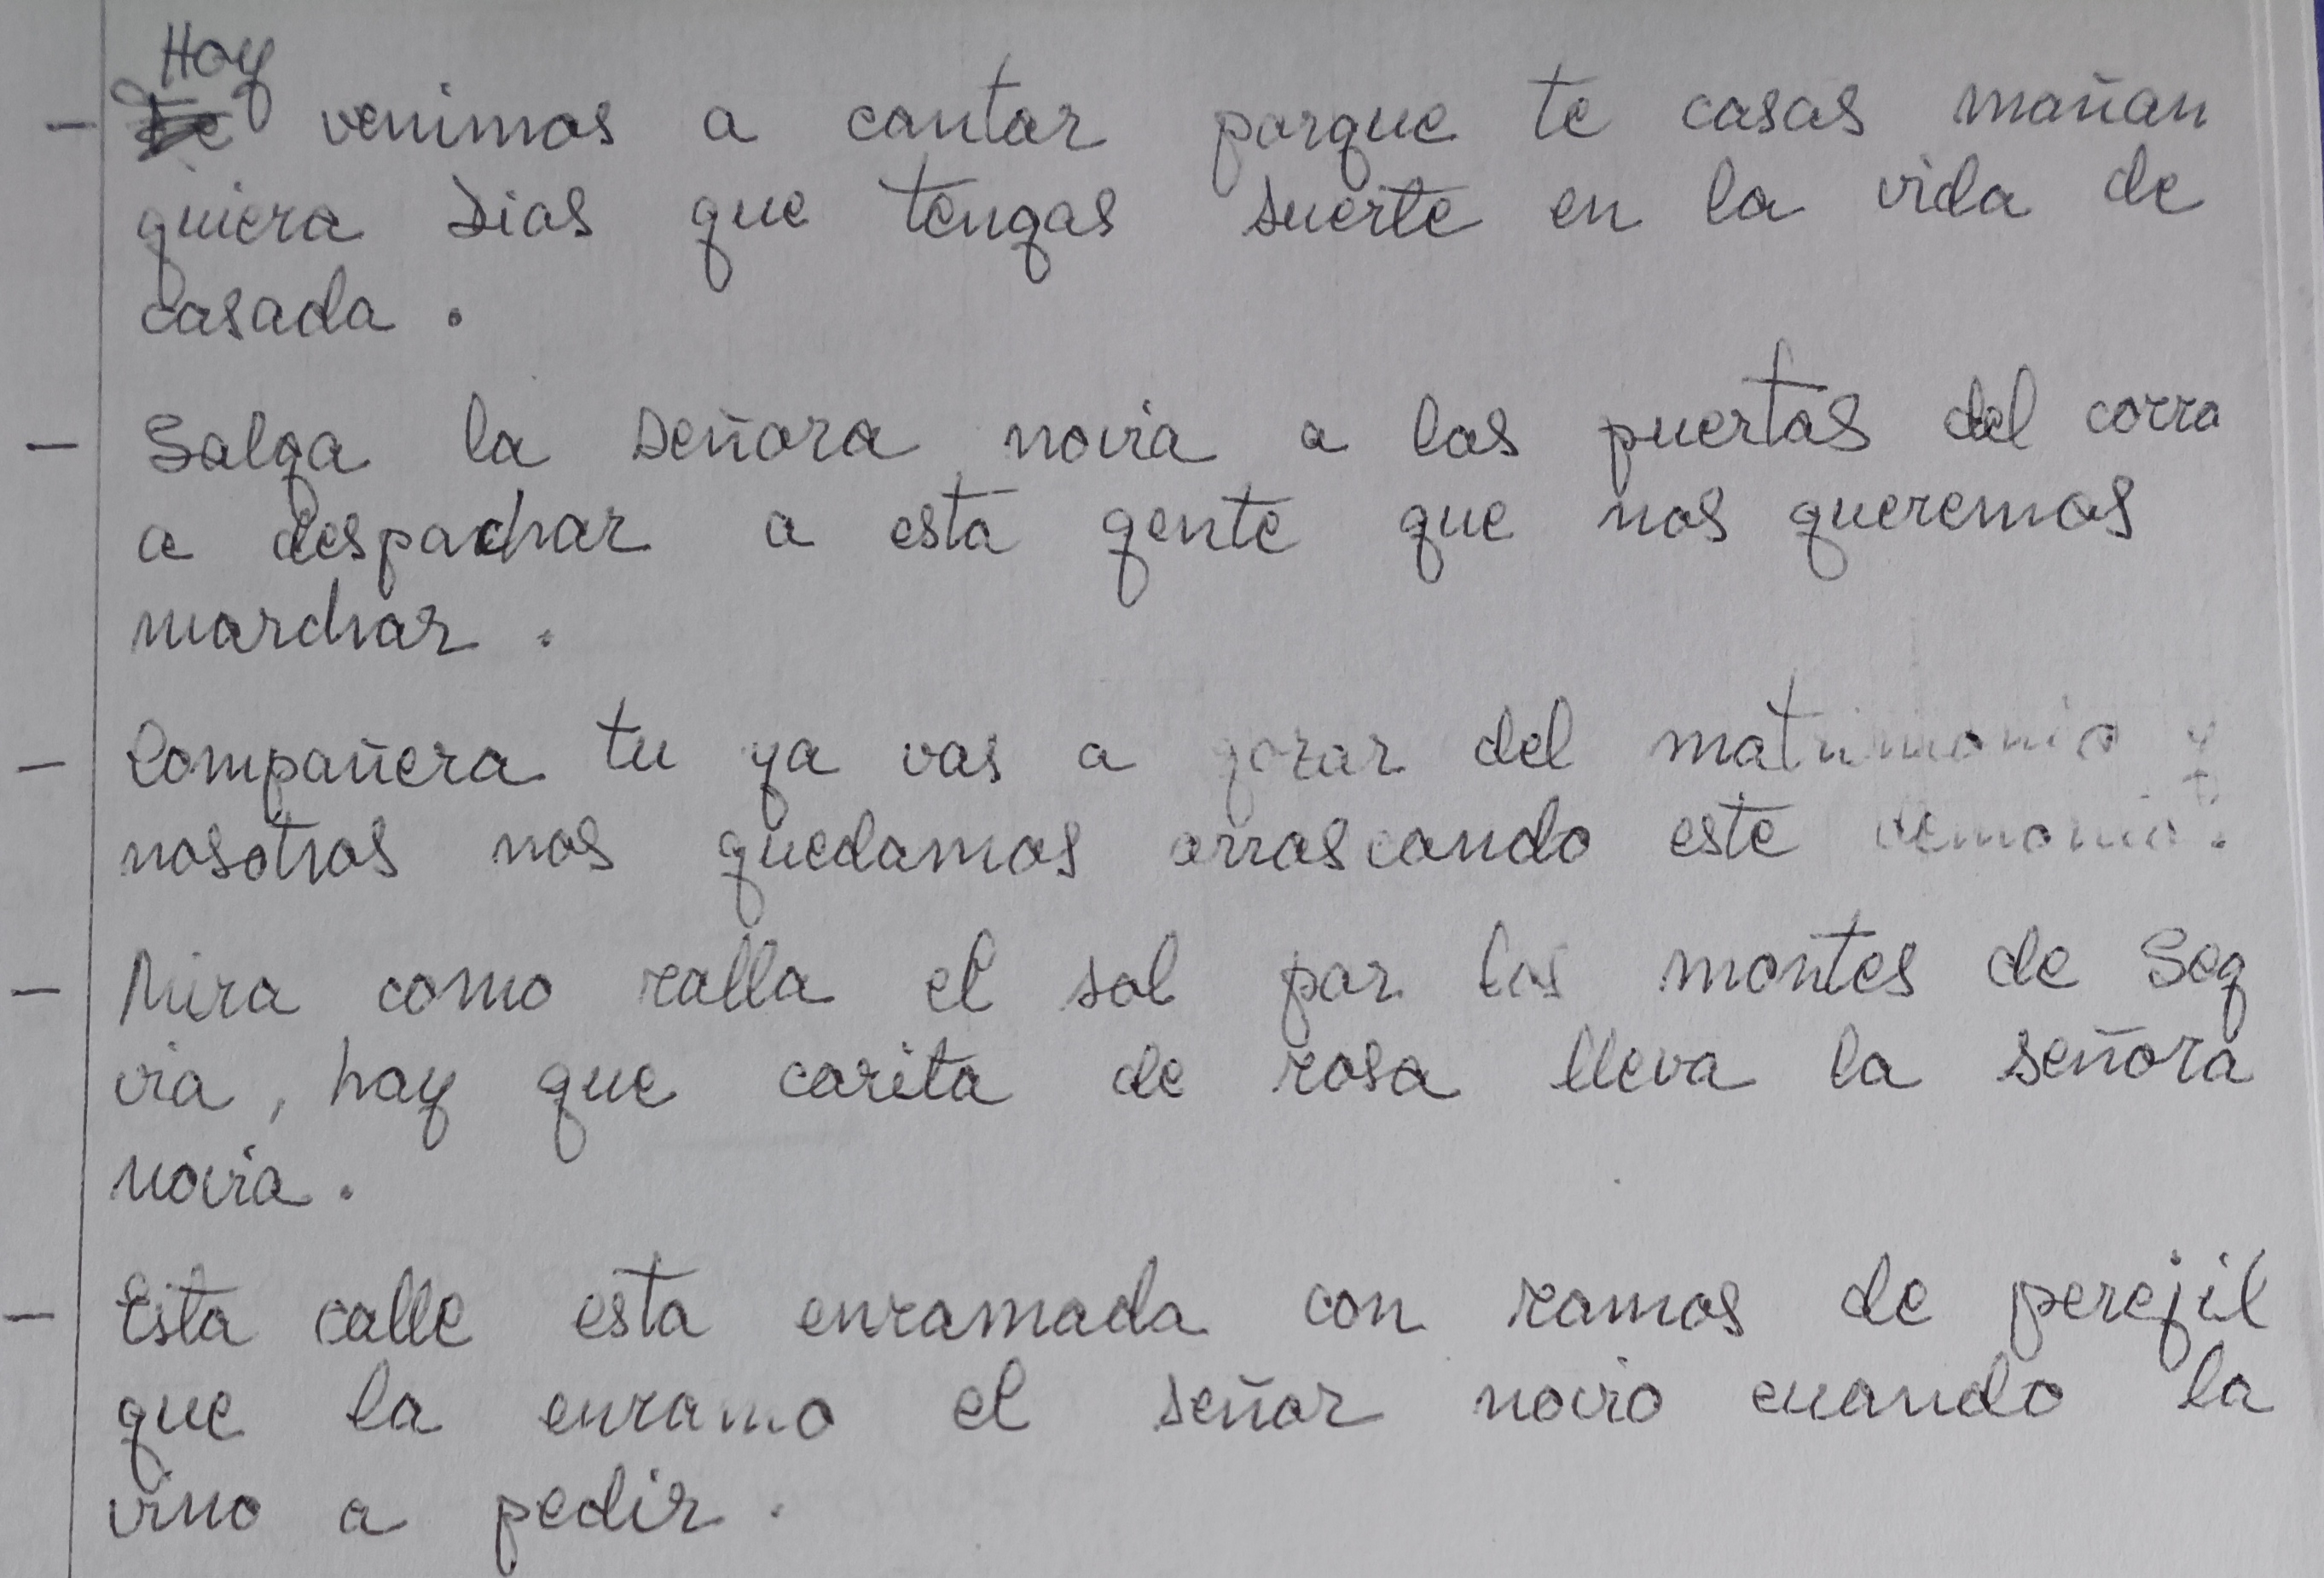 Hoy
- venimos a cantar porque te casas mañan
quiera Dios que tengas suerte en la vida de
casada.
- Salga la señora novia a las puertas del corra
a despachar a esta gente que nos queremos
marchar.
- Compañera tu ya vas a gozar del matrimonio y
nosotros nos quedamos arrascando este demonio.
- Mira como ralla el sol por los montes de Seg
via, hay que carita de rosa lleva la señora
novia.
- Esta calle esta enramada con ramos de perejil
que la enramo el señor novio cuando la
vino a pedir.